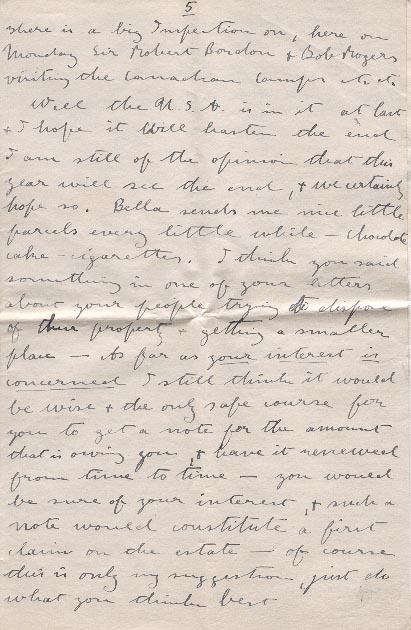 5
there is a big Inspection on, here on
Monday Sir Robert Bordon & Bob Rogers
visiting the Canadian camps etc etc.
Well the U.S.A. is in it at last
& I hope it will hasten the end
I am still of the opinion that this
year will see the end, & we certainly
hope so. Bella sends me nice little
parcels every little while – chocolate
cake – cigarettes. I think you said
something in one of your letters
about your people trying to dispose
of their property & getting a smaller
place – As far as your interest is
concerned I still think it would
be wise & the only safe course for
you to get a note for the amount
that is owing you, & have it renewed
from time to time – you would
be sure of your interest, & such a
note would constitute a first
claim on the estate – of course
this is only my suggestion, just do
what you think best